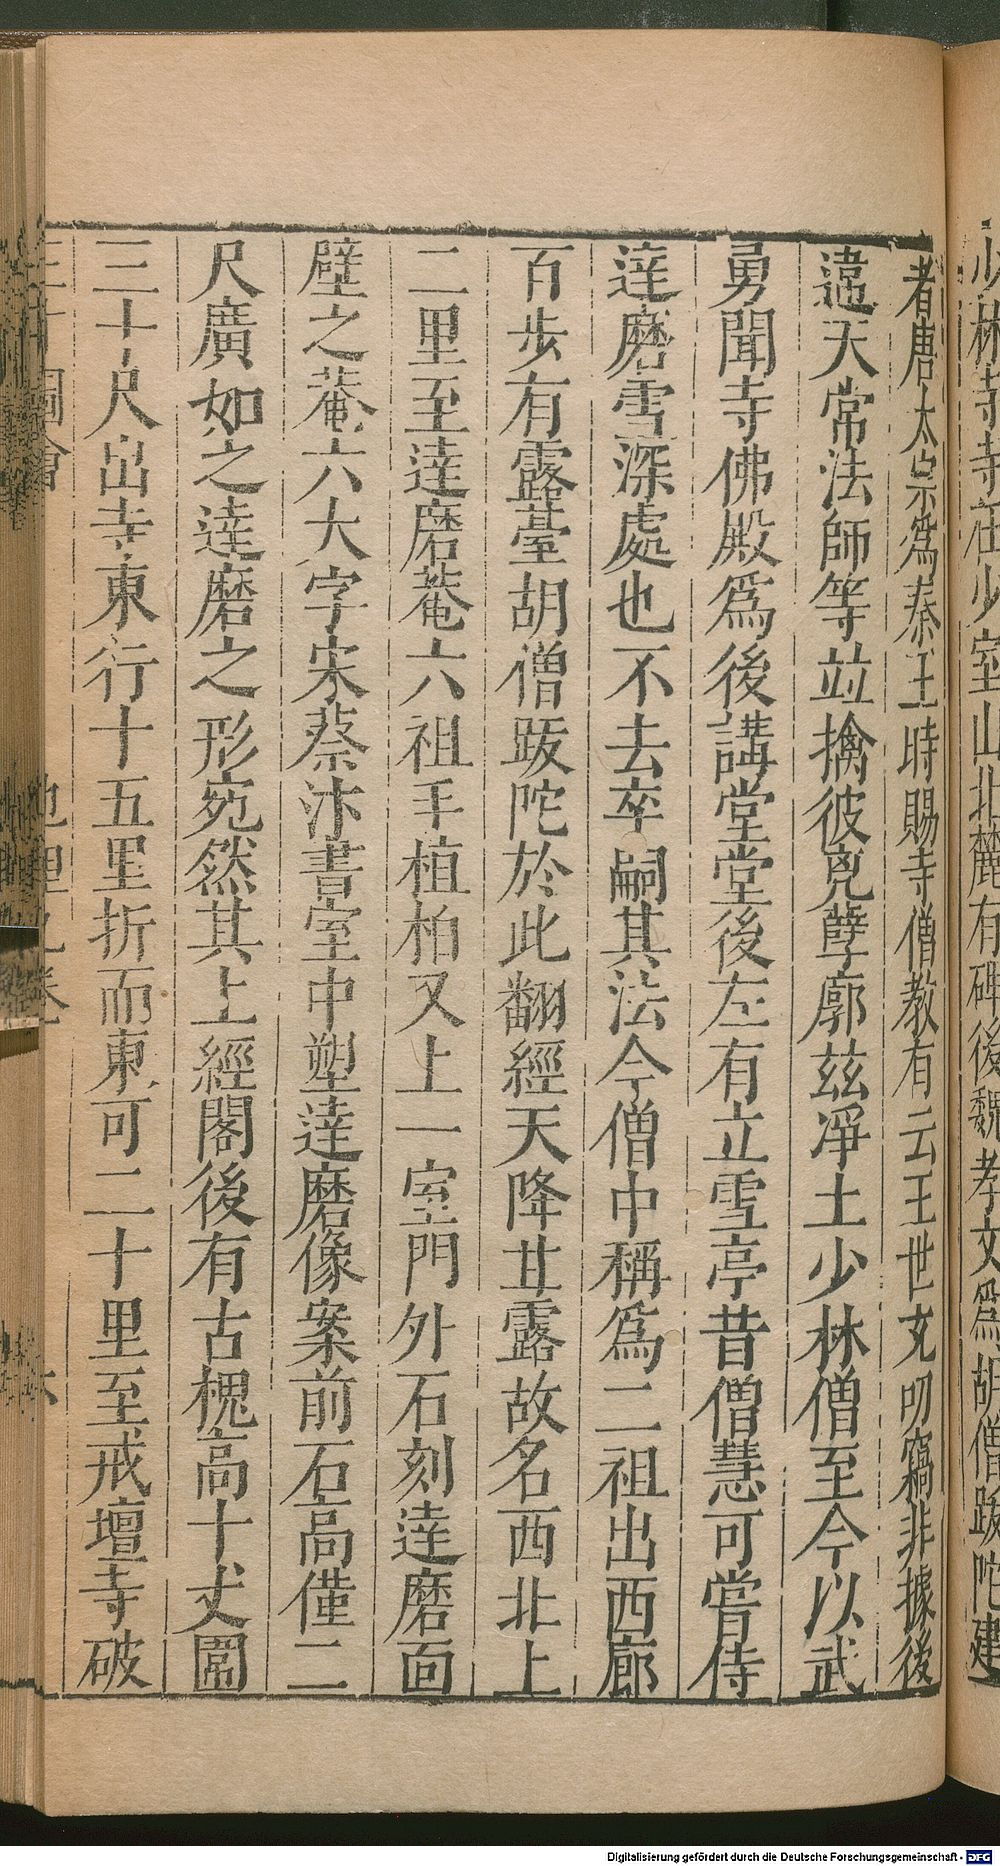 少林寺寺在少室山北麓有碑後魏孝文爲胡僧跋陀建
者唐太宗爲秦王時賜寺僧教有云王世充叨竊非據後
違天常法師等並擒彼兇孽廓茲凈土少林僧至今以武
勇聞寺佛殿爲後講堂堂後左有立雪亭昔僧慧可嘗侍
達磨雪深處也不去卒嗣其法今僧中稱爲二祖出西廊
百步有露臺胡僧跋陀於此翻經天降甘露故名西北上
二里至達磨菴六祖手植柏又上一室門外石刻達磨面
壁之菴六大字宋蔡汴書室中塑達磨像案前石高僅二
尺廣如之達磨之形宛然其上經閣後有古槐高十丈圍
三十尺出寺東行十五里折而東可二十里至戒壇寺破
Digitalisierung gefördert durch die Deutsche Forschungsgemeinschaft - DFG